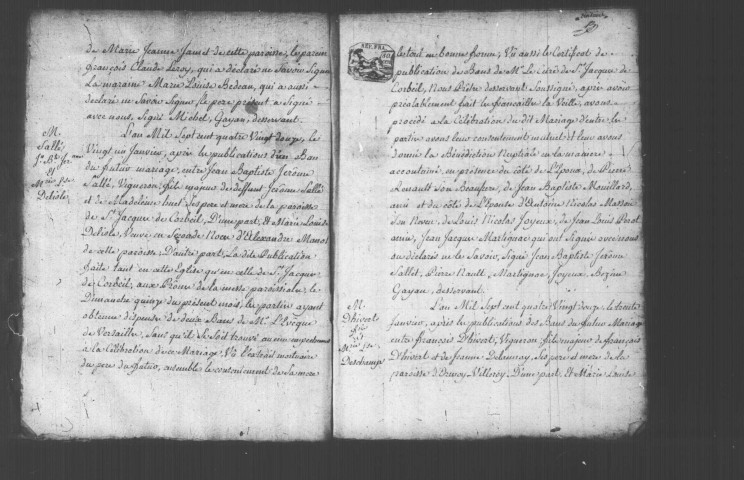 de Marie Jeanne Jamet de cette paroisse, le parein
françois Claude Leroy, qui a déclaré ne Savoir Signer
La maraine Marie Louise Bedeau, qui a aussi
declaré ne Savoir Signer, le pere présent a Signé
avec nous, Signé Michel, Gayan, desservant.
L'an Mil Sept cent quatre Vingt douze, le
Vingt un Janvier, après la publications d'un Ban
du futur mariage, entre Jean Baptiste Jerôme
Sallé, Vigneron, fils majeur de deffunt Jerôme Sallé
et de Magdeleine huet Ses pere et mere de la paroisse
de St. Jacque de Corbeil, D'une part, Et Marie Louise
Delisle, Veuve en Seconde Noce d'Alexandre Manot
de cette paroisse, D'autre part, La dite Publication
faite tant en cette Eglise qu'en celle de St. Jacque
de Corbeil, aux Prône de la messe paroissiale, le
Dimanche quinze du présent mois, les parties ayant
obtenue dispense de deux Bans de Mr. L'Evêque
de Versaille, Sans qu'il Se Soit trouvé aucun empechement
à la Célébration de ce Mariage, Vû l'extrait mortuaire
du pere du futur, ensemble le consentement de Sa mere
M.
Sallé
Jn. Bte. Jrome
Et
Mrie. Lse.
Delisle
le tout en bonne forme; Vû aussi le Certificat de
publication de Bans de Mr. Le Curé de St. Jacque de
Corbeil, Nous Prêtre desservant Soussigné, après avoir
préalablement fait les fiançailles la Veille, avons
procédé à la Célébration du dit Mariage d'entre les
parties avons leur consentement mutuel et leur avons
donné la Bénédiction Nuptiale en la maniere
accoutumée en présence du côté de L'Epoux, de Pierre
Renault Son Beaufrere, de Jean Baptiste Rouillard,
ami et du côté de L'Epouse d'Antoine Nicolas Masson
Son Neveu, de Louis Nicolas Joyeux, de Jean Louis
amis, Jean Jacque Martignac qui ont Signé avec nous
ou déclaré ne le Savoir, Signé Jean Baptiste Jerôme
Sallé, Pierre Nault, Martignac, Joyeux,
Gayan, desservant.
L'an Mil Sept cent quatre Vingt douze, le trente
Janvier, après les publications des Bans du futur Mariage
entre françois D'hivert, Vigneron fils majeur de françois
D'hivert et de Jeanne Delaunay, Ses pere et mere de la
paroisse d'Evry Villeroy, D'une part, Et Marie Louise
M
D'hivert
fois
Et
Mrie. Lse.
Deschamps